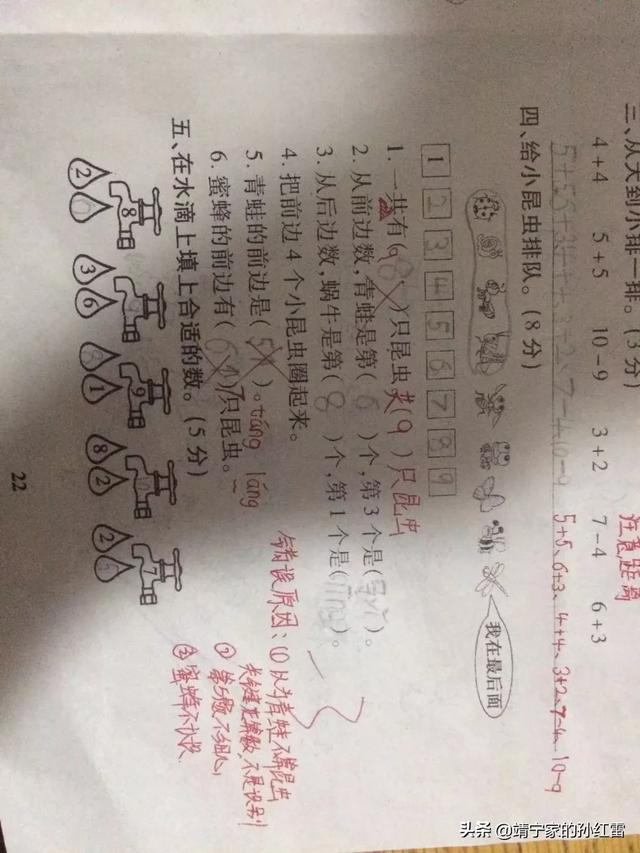 三、从大到小排一排。(3分)
注意距离
4+4 5+5 10-9 3+2 7-4 6+3
5+5、6+3、4+4、3+2、7-4、10-9
四、给小昆虫排队。(8分)
我在最后面
1 2 3 4 5 6 7 8 9
1. 一共有( 8 )只昆虫 共(9)只昆虫
2. 从前边数,青蛙是第( 6 )个,第3个是( )。
3. 从后边数,蜗牛是第( 8 )个,第1个是( )。
4. 把前边4个小昆虫圈起来。
5. 青蛙的前边是( 5 )。táng láng
6. 蜜蜂的前边有( 7)只昆虫。
错误原因:①认为青蛙不算昆虫
关键是算数,不是识别
②
③蜜蜂不认识
五、在水滴上填上合适的数。(5分)
8 9 9 10 7
2 6 3 6 8 1 8 2 2 5
22
头条 @靖宁家的孙红雷